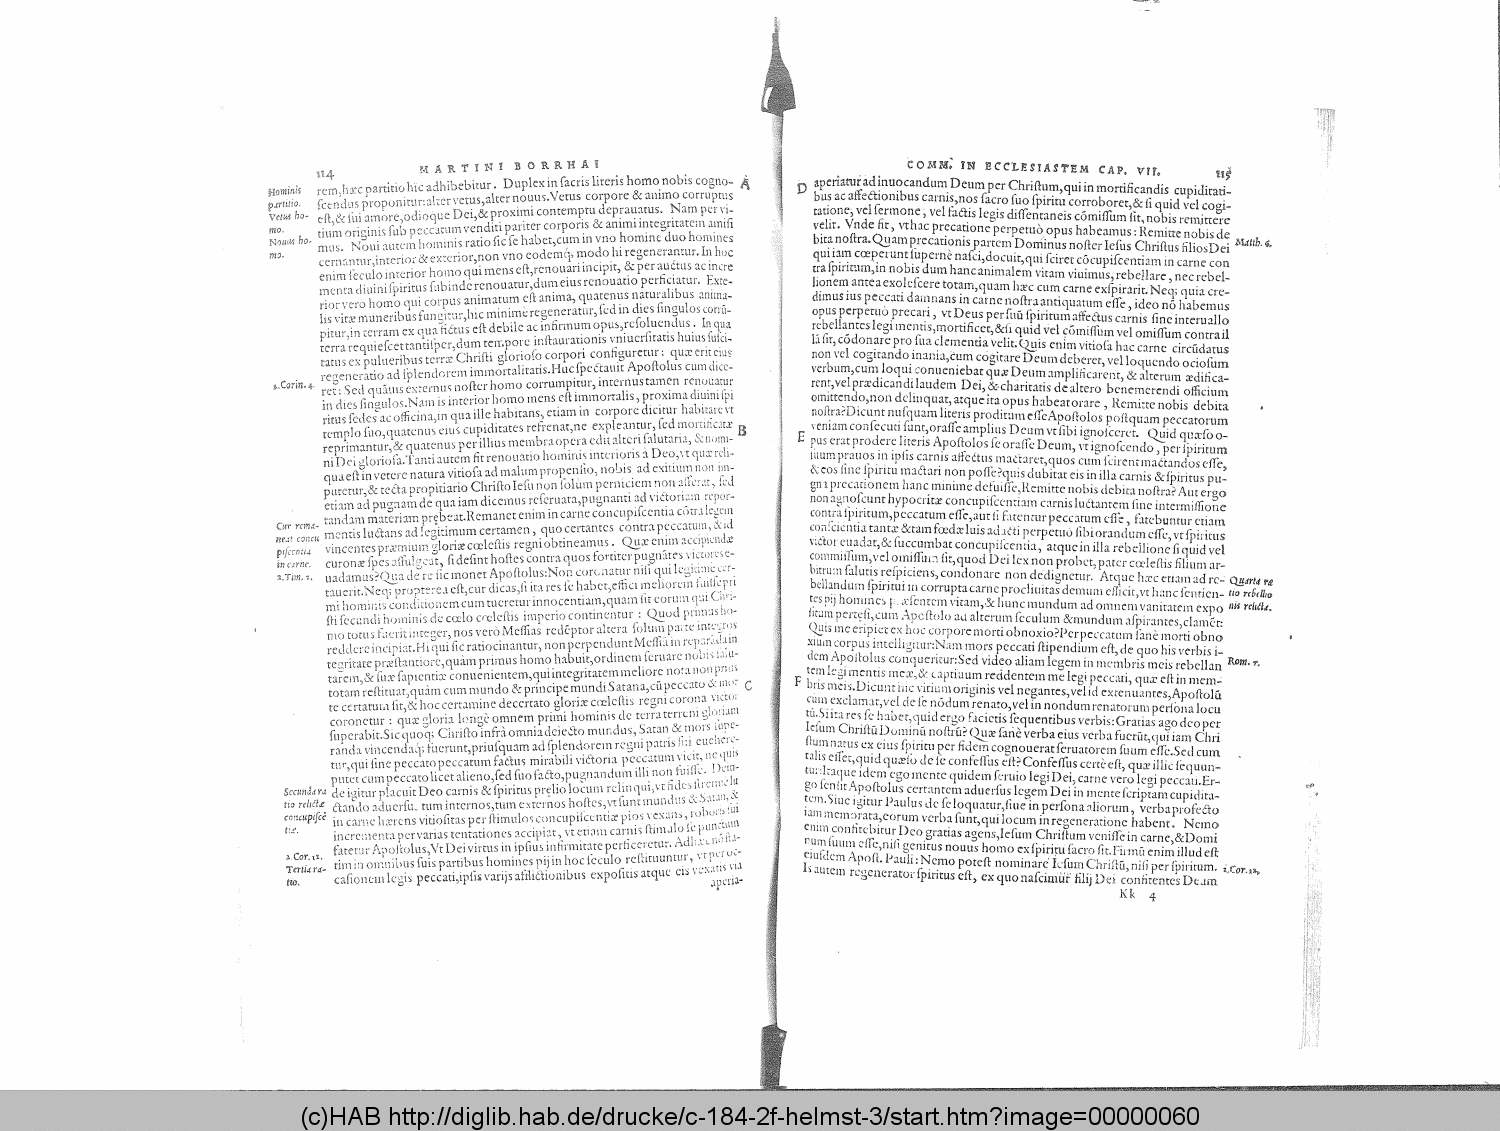 114
MARTINI BORRHAI
rem,hæc partitio hic adhibebitur. Duplex in ſacris literis homo nobis cogno-
ſcendus proponitur:alter vetus,alter nouus.Vetus corpore & animo corruptus
eſt,& ſui amore,odioque Dei,& proximi contemptu deprauatus. Nam per vi-
tium originis ſub peccatum venditi pariter corporis & animi integritatem amiſi
mus. Noui autem hominis ratio ſic ſe habet,cum in vno homine duo homines
cernantur,interior & exterior,non vno eodemq́; modo hi regenerantur. In hoc
enim ſeculo interior homo qui mens eſt,renouari incipit, & per auctus ac incre
menta diuini ſpiritus ſubinde renouatur,dum eius renouatio perficiatur. Exte-
rior vero homo qui corpus animatum eſt anima, quatenus naturalibus anima-
lis vitæ muneribus fungitur,hic minime regeneratur, ſed in dies ſingulos corrū-
pitur,in terram ex qua fictus eſt debile ac infirmum opus,reſoluendus. In qua
terra requieſcet tantiſper,dum tempore inſtaurationis vniuerſitatis huius ſuſci-
tatus ex pulueribus terræ Chriſti glorioſo corpori configuretur: quæ erit eius
regeneratio ad ſplendorem immortalitatis.Huc ſpectauit Apoſtolus cum dice-
ret: Sed quāuis externus noſter homo corrumpitur, internus tamen renouatur
in dies ſingulos.Nam is interior homo mens eſt immortalis, proxima diuini ſpi
ritus ſedes ac officina,in qua ille habitans, etiam in corpore dicitur habitare vt
templo ſuo,quatenus eius cupiditates refrenat,ne expleantur, ſed mortificatæ
reprimantur,& quatenus per illius membra opera edit alteri ſalutaria, & nomi-
ni Dei glorioſa.Tanti autem fit renouatio hominis interioris à Deo,vt quæ reli-
qua eſt in vetere natura vitioſa ad malum propenſio, nobis ad exitium non im-
putetur,& tecta propitiario Chriſto Ieſu non ſolum perniciem non afferat, ſed
etiam ad pugnam de qua iam dicemus reſeruata,pugnanti ad victoriam repor-
tandam materiam prębeat.Remanet enim in carne concupiſcentia cōtra legem
mentis luctans ad legitimum certamen, quo certantes contra peccatum, & id
vincentes præmium gloriæ cœleſtis regni obtineamus. Quæ enim accipiendæ
curonæ ſpes affulgeat, ſi deſint hoſtes contra quos fortiter pugnātes victores e-
uadamus?Qua de re ſic monet Apoſtolus:Non coronatur niſi qui legitime cer-
tauerit.Neq; propterea eſt,cur dicas,ſi ita res ſe habet,effici meliorem fuiſſe pri
mi hominis conditionem cum tueretur innocentiam,quam ſit eorum qui Chri-
ſti ſecundi hominis de cœlo cœleſtis imperio continentur: Quod primus ho-
mo totus fuerit integer, nos verò Meſſias redēptor altera ſolum parte integros
reddere incipiat.Hi qui ſic ratiocinantur, non perpendunt Meſſiā in reparāda in
tegritate præſtantiore,quàm primus homo habuit,ordinem ſeruare nobis ſalu-
tarem,& ſuæ ſapientiæ conuenientem,qui integritatem meliore nota non prius
totam reſtituat,quàm cum mundo & principe mundi Satana,cū peccato & mor
te certatum ſit,& hoc certamine decertato gloriæ cœleſtis regni corona victor
coronetur: quæ gloria longè omnem primi hominis de terra terreni gloriam
ſuperabit.Sic quoq; Chriſto infrà omnia deiecto mundus, Satan & mors ſupe-
randa vincendaq́; fuerunt,priuſquam ad ſplendorem regni patris ſui euehere-
tur,qui ſine peccato peccatum factus mirabili victoria peccatum vicit, ne quis
putet cum peccato licet alieno,ſed ſuo facto,pugnandum illi non fuiſſe. Dein-
de igitur placuit Deo carnis & ſpiritus prelio locum relinqui,vt fides ſtrenue lu
ctando aduerſū. tum internos,tum externos hoſtes,vt ſunt mundus & Satan, &
in carne hærens vitioſitas per ſtimulos concupiſcentiæ pios vexans, roboris ſui
incrementa per varias tentationes accipiat, vt etiam carnis ſtimulo ſe punctum
fatetur Apoſtolus,Vt Dei virtus in ipſius infirmitate perficeretur.
tim in omnibus ſuis partibus homines pij in hoc ſeculo reſtituuntur, vt per oc-
caſionem legis peccati,ipſis varijs afflictionibus expoſitis atque eis vexatis via
aperia-
Hominis
partitio.
Vetus ho-
mo.
Nouus ho-
mo.
2.Corin. 4.
Cur rema-
neat concu
piſcentia
in carne.
2.Tim. 2.
Secunda ra
tio relictæ
concupiſcē
tiæ.
2.Cor.12.
Tertia ra-
tio.
A
B
C
COMM. IN ECCLESIASTEM CAP. VII.
115
aperiatur ad inuocandum Deum per Chriſtum,qui in mortificandis cupiditati-
bus ac affectionibus carnis,nos ſacro ſuo ſpiritu corroboret,& ſi quid vel cogi-
tatione, vel ſermone, vel factis legis diſſentaneis cōmiſſum ſit, nobis remittere
velit. Vnde fit, vt hac precatione perpetuò opus habeamus: Remitte nobis de
bita noſtra.Quam precationis partem Dominus noſter Ieſus Chriſtus filios Dei
qui iam cœperunt ſupernè naſci,docuit,qui ſciret cōcupiſcentiam in carne con
tra ſpiritum,in nobis dum hanc animalem vitam viuimus,rebellare, nec rebel-
lionem antea exoleſcere totam,quam hæc cum carne exſpirarit.Neq; quia cre-
dimus ius peccati damnans in carne noſtra antiquatum eſſe, ideo nō habemus
opus perpetuò precari, vt Deus per ſuū ſpiritum affectus carnis ſine interuallo
rebellantes legi mentis,mortificet,&ſi quid vel cōmiſſum vel omiſſum contra il
lā ſit,cōdonare pro ſua clementia velit.Quis enim vitioſa hac carne circūdatus
non vel cogitando inania,cum cogitare Deum deberet, vel loquendo ocioſum
verbum,cum loqui conueniebat quæ Deum amplificarent, & alterum ædifica-
rent,vel prædicandi laudem Dei, & charitatis de altero benemerendi officium
omittendo,non delinquat,atque ita opus habeat orare, Remitte nobis debita
noſtra?Dicunt nuſquam literis proditum eſſe Apoſtolos poſtquam peccatorum
veniam conſecuti ſunt,oraſſe amplius Deum vt ſibi ignoſceret. Quid quæſo o-
pus erat prodere literis Apoſtolos ſe oraſſe Deum, vt ignoſcendo, per ſpiritum
ſuum prauos in ipſis carnis affectus mactaret,quos cum ſcirent mactandos eſſe,
& eos ſine ſpiritu mactari non poſſe?quis dubitat eis in illa carnis & ſpiritus pu-
gna precationem hanc minime defuiſſe,Remitte nobis debita noſtra? Aut ergo
non agnoſcunt hypocritæ concupiſcentiam carnis luctantem ſine intermiſſione
contra ſpiritum,peccatum eſſe,aut ſi fatentur peccatum eſſe, fatebuntur etiam
conſcientia tantæ & tam fœdæ luis ad acti perpetuò ſibi orandum eſſe, vt ſpiritus
victor euadat,& ſuccumbat concupiſcentia, atque in illa rebellione ſi quid vel
commiſſum,vel omiſſum ſit,quod Dei lex non probet, pater cœleſtis filium ar-
bitrum ſalutis reſpiciens, condonare non dedignetur. Atque hæc etiam ad re-
bellandum ſpiritui in corrupta carne procliuitas demum efficit,vt hanc ſentien-
tes pij homines præſentem vitam,& hunc mundum ad omnem vanitatem expo
ſitum pertęſi,cum Apoſtolo ad alterum ſeculum & mundum aſpirantes,clamēt:
Quis me eripiet ex hoc corpore morti obnoxio?Per peccatum ſanè morti obno
xium corpus intelligitur:Nam mors peccati ſtipendium eſt,de quo his verbis i-
dem Apoſtolus conqueritur:Sed video aliam legem in membris meis rebellan
tem legi mentis meæ,& captiuum reddentem me legi peccati, quæ eſt in mem-
bris meis.Dicunt hic vitium originis vel negantes,vel id extenuantes,Apoſtolū
cum exclamat,vel de ſe nōdum renato,vel in nondum renatorum perſona locu
tū.Si ita res ſe habet,quid ergo facietis ſequentibus verbis:Gratias ago deo per
Ieſum Chriſtū Dominū noſtrū? Quæ ſanè verba eius verba fuerūt,qui iam Chri
ſtum natus ex eius ſpiritu per fidem cognouerat ſeruatorem ſuum eſſe.Sed cum
talis eſſet,quid quæſo de ſe confeſſus eſt? Confeſſus certè eſt, quæ illic ſequun-
tur:Itaque idem ego mente quidem ſeruio legi Dei, carne vero legi peccati.Er-
go ſenſit Apoſtolus certantem aduerſus legem Dei in mente ſcriptam cupidita-
tem.Siue igitur Paulus de ſe loquatur,ſiue in perſona aliorum, verba profecto
iam memorata,eorum verba ſunt,qui locum in regeneratione habent. Nemo
enim confitebitur Deo gratias agens,Ieſum Chriſtum veniſſe in carne,& Domi
num ſuum eſſe,niſi genitus nouus homo ex ſpiritu ſacro ſit.Firmū enim illud eſt
eiuſdem Apoſt. Pauli: Nemo poteſt nominare Ieſum Chriſtū, niſi per ſpiritum.
Is autem regenerator ſpiritus eſt, ex quo naſcimur filij Dei confitentes Deum
Kk 4
D
E
F
Matth. 6.
Quarta ra
tio rebellio
nis relictæ.
Rom. 7.
1.Cor.12.
(c)HAB http://diglib.hab.de/drucke/c-184-2f-helmst-3/start.htm?image=00000060